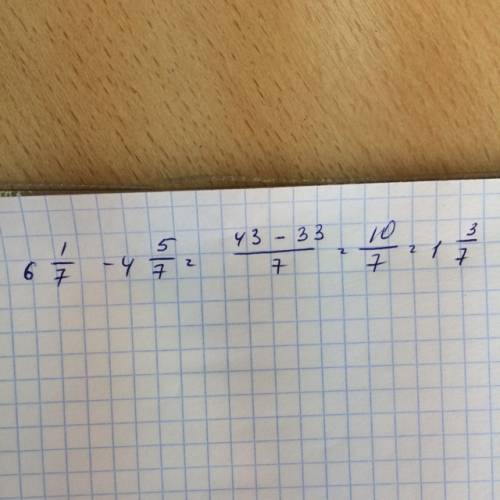 6 1/7 - 4 5/7 = (43 - 33)/7 = 10/7 = 1 3/7